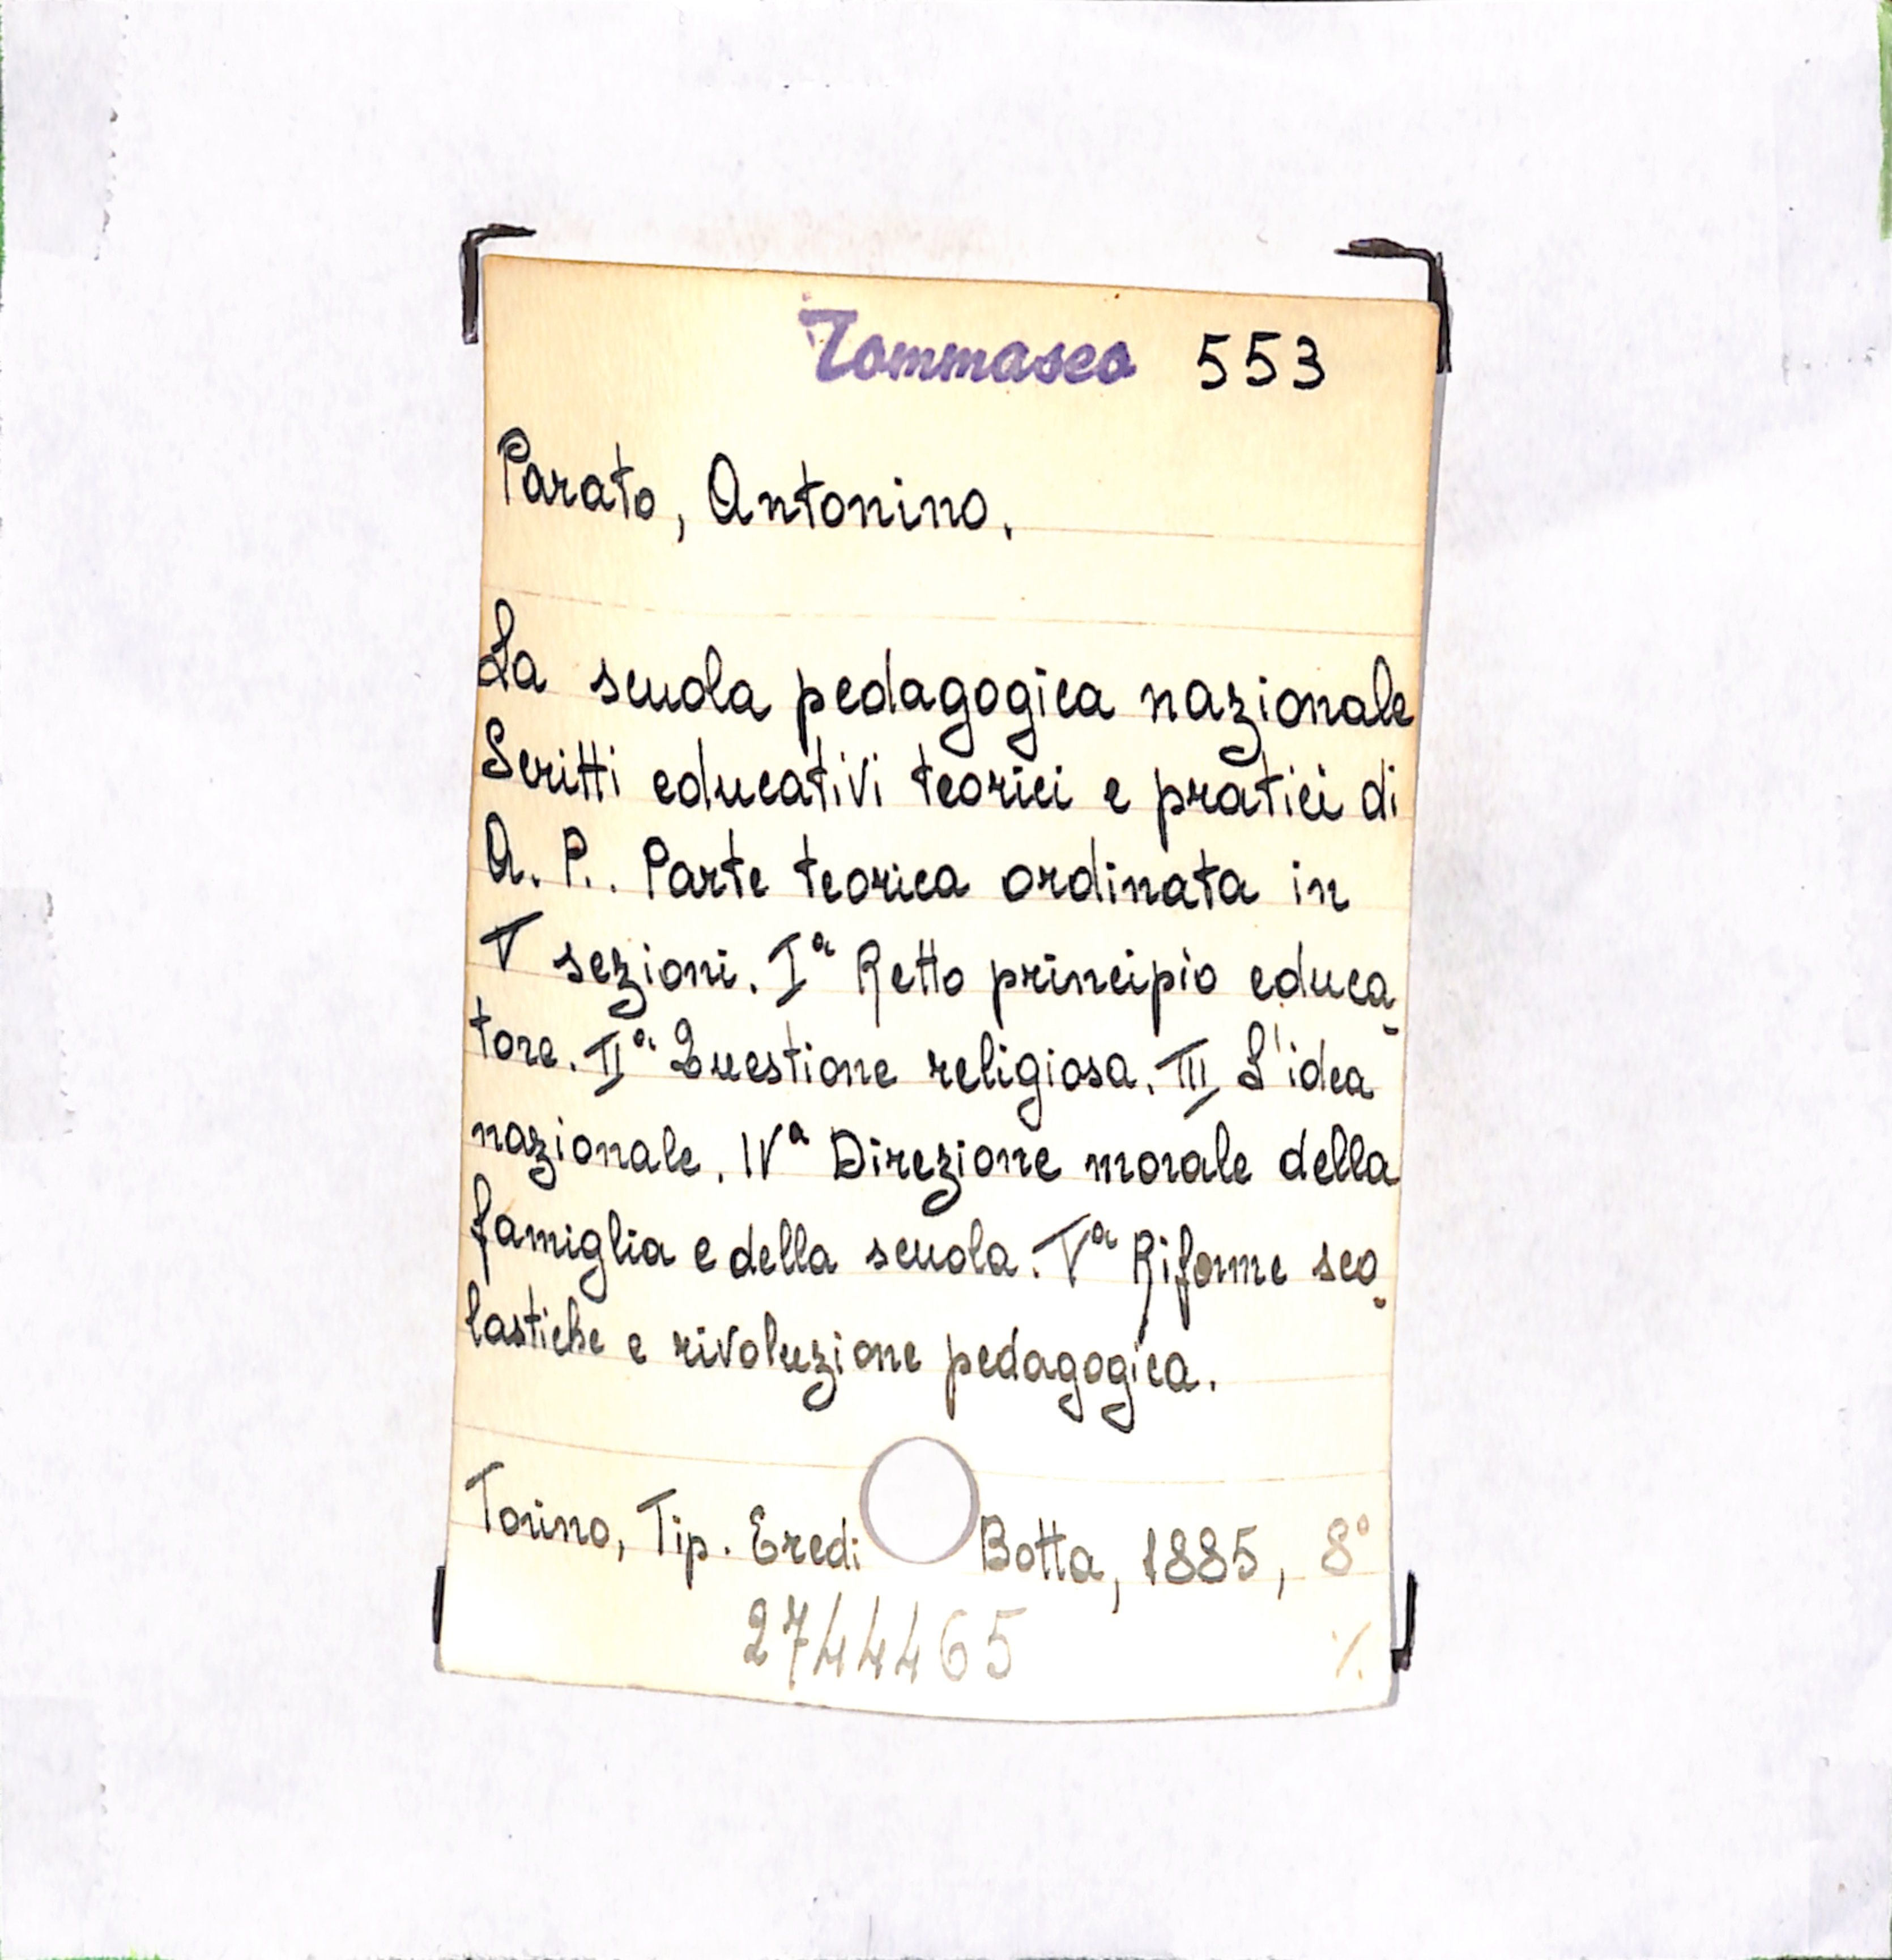 Tommaseo 553
Parato, Antonino.
La scuola pedagogica nazionale
Scritti educativi teorici e pratici di
A. P.. Parte teorica ordinata in
V sezioni. Iª Retto principio educa-
tore. IIª Questione religiosa. III L'idea
nazionale. IVª Direzione morale della
famiglia e della scuola. Vª Riforme sco-
lastiche e rivoluzione pedagogica.
Torino, Tip. Eredi Botta, 1885, 8°
2744465 ./.